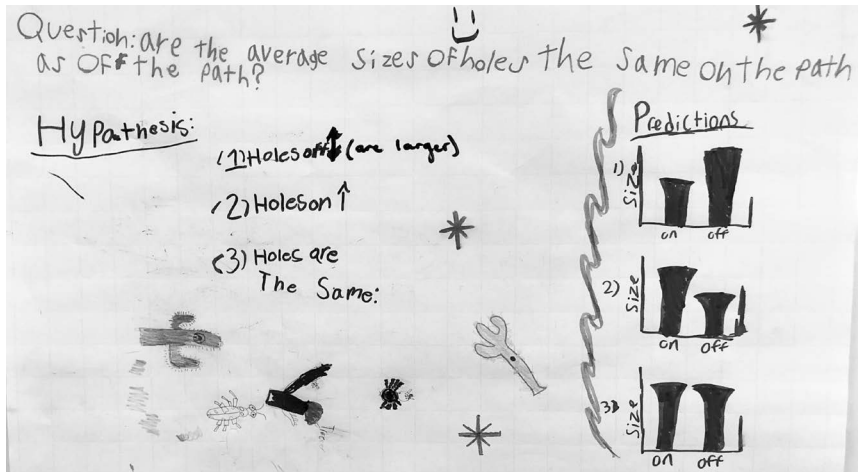 Question: are the average sizes of holes the same on the path
as off the path?
Hypathesis:
(1) Holes off ↕ (are larger)
(2) Holes on ↑
(3) Holes are
The Same:
Predictions
1)
Size
on off
2)
Size
on off
3)
Size
on off